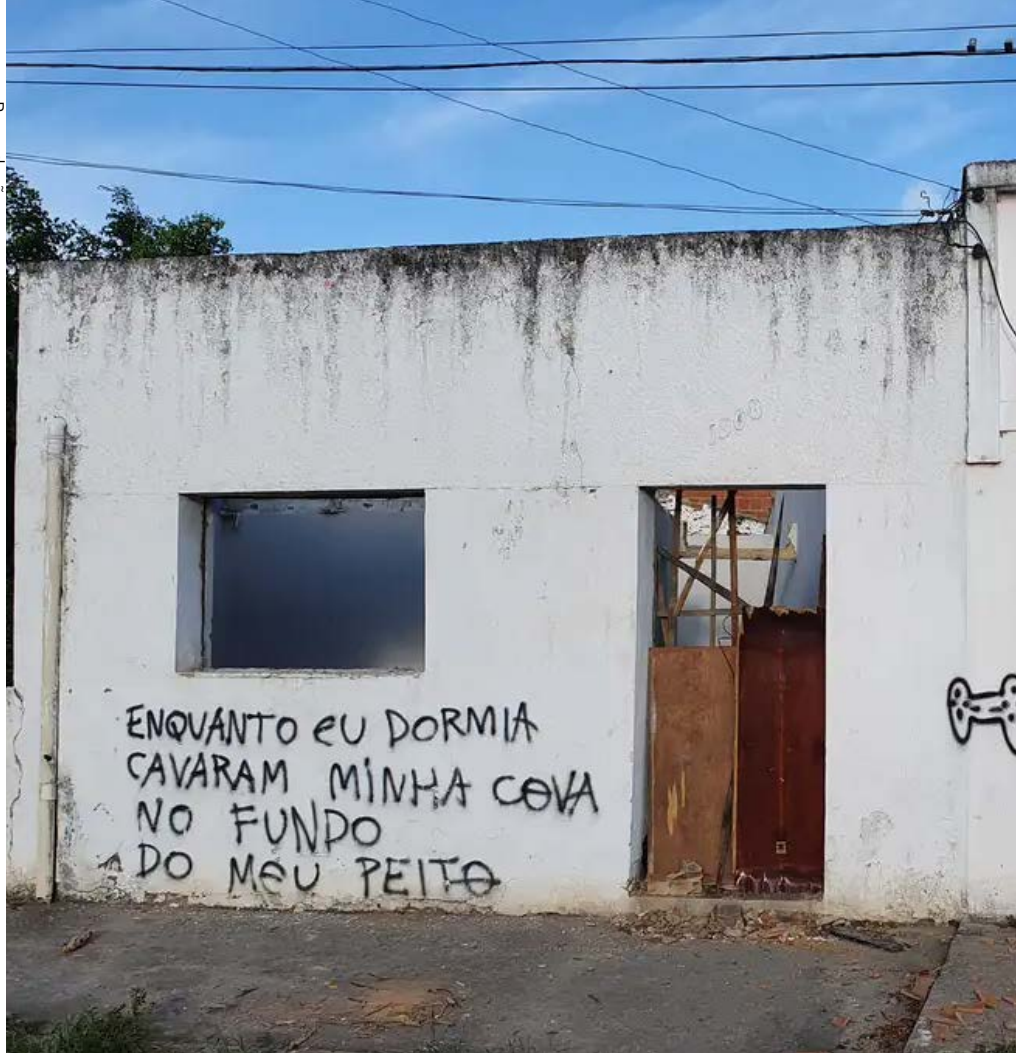 ENQUANTO EU DORMIA
CAVARAM MINHA COVA
NO FUNDO
DO MEU PEITO